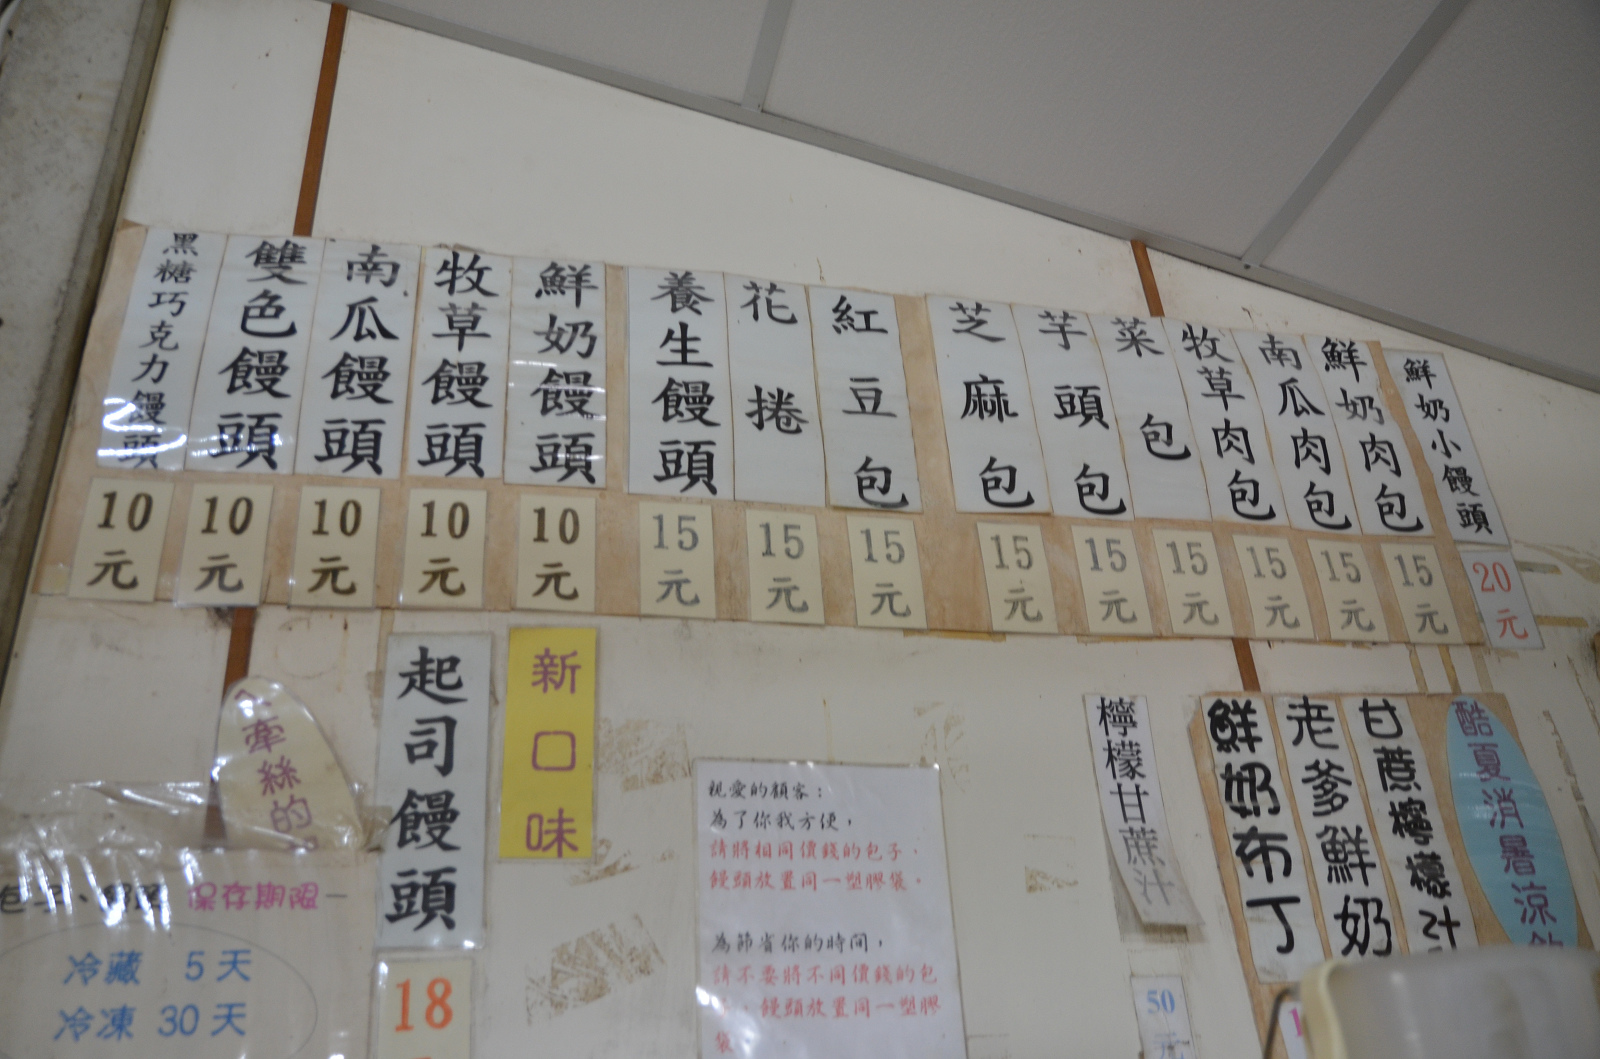 黑糖巧克力饅頭
10元
雙色饅頭
10元
南瓜饅頭
10元
牧草饅頭
10元
鮮奶饅頭
10元
養生饅頭
15元
花捲
15元
紅豆包
15元
芝麻包
15元
芋頭包
15元
菜包
15元
牧草肉包
15元
南瓜肉包
15元
鮮奶肉包
15元
鮮奶小饅頭
20元
牽絲的
起司饅頭
18
新口味
保存期限
冷藏 5天
冷凍 30天
親愛的顧客：
為了你我方便，
請將相同價錢的包子、
饅頭放置同一塑膠袋．
為節省你的時間，
請不要將不同價錢的包
、饅頭放置同一塑膠
袋
檸檬甘蔗汁
50元
鮮奶布丁
老爹鮮奶
甘蔗檸檬汁
酷夏消暑涼